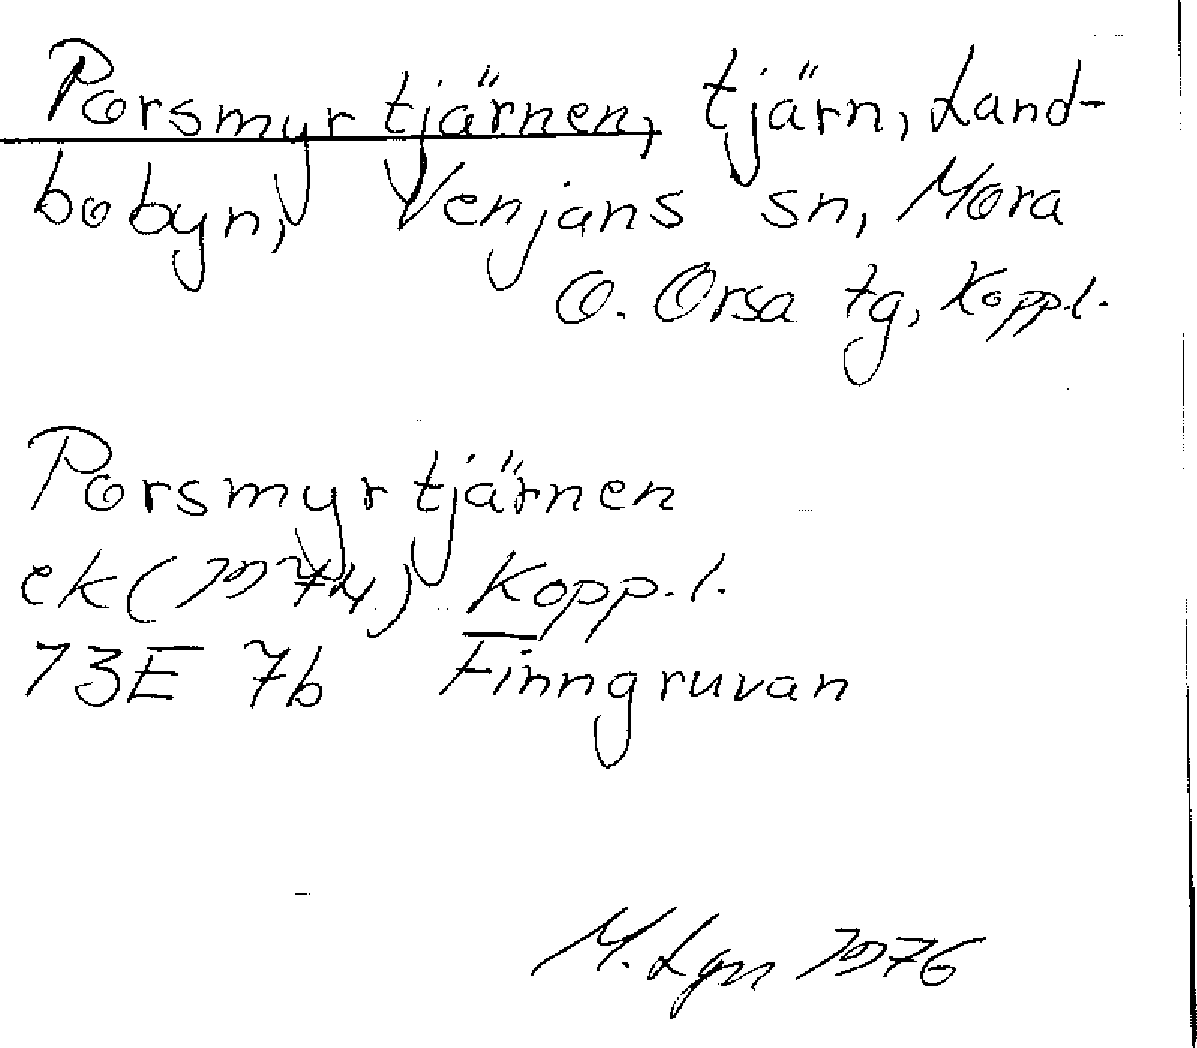 Porsmyrtjärnen, tjärn, Land-
bobyn, Venjans sn, Mora
o. Orsa tg, Kopp.l.
Porsmyrtjärnen
ek (1974) Kopp.l.
13E 7b Finngruvan
M. Lgn 1976